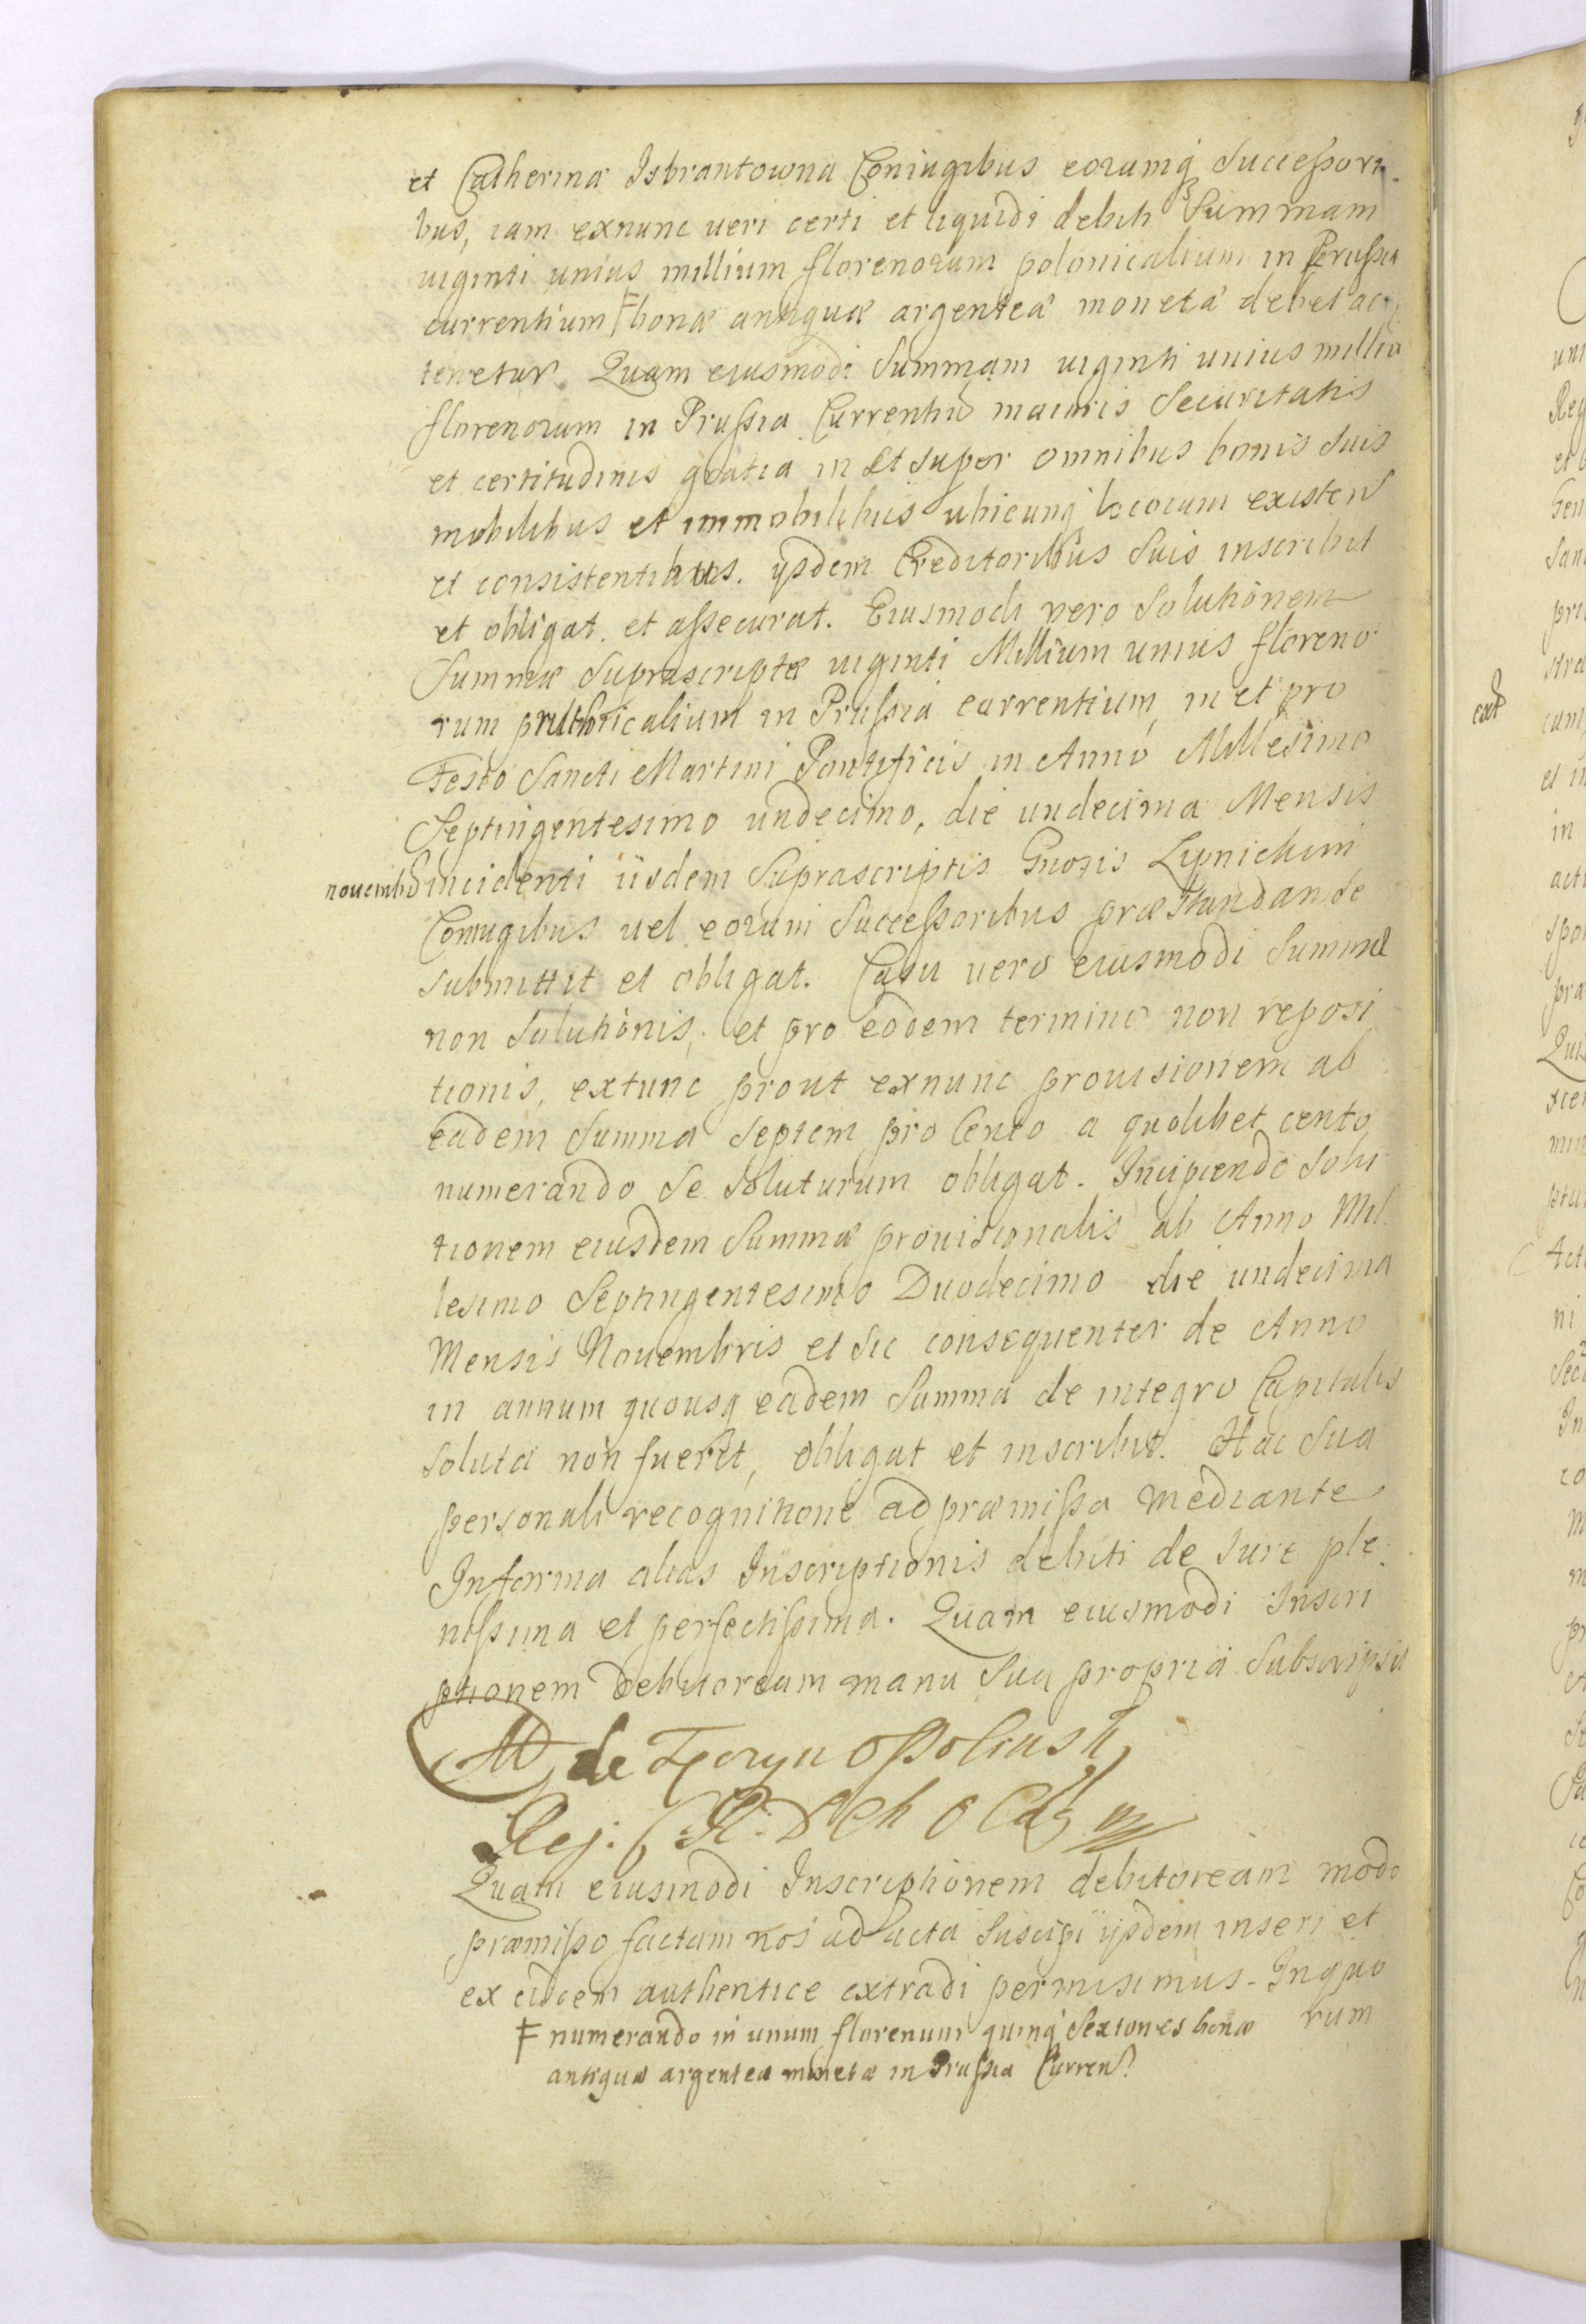 et Catherinæ Isbrantowna Coniugibus eorumq successori-
bus, iam exnunc ueri certi et liquidi debiti Summam
uiginti unius millium florenorum polonicalium in Prussia
currentium ╒ bonæ antiquæ argenteæ monetæ debet ac
tenetur. Quam eiusmodi Summam uiginti unius millia
florenorum in Prussia Currentiu maioris Securitatis
et certitudinis gratia in et super omnibus bonis suis
mobilibus et immobilibus ubicunq locorum existen
et consistentibus. ijsdem Creditoribus suis inscribit
et obligat. et assecurat. Eiusmodi vero Solutionem
Summæ Suprascriptæ uiginti Millium unius floreno
rum in Prussia currentium, in et pro
Festo Sancti Martini Pontificis in Anno Millesimo
Septingentesimo undecimo, die undecima Mensis
nouemb incidenti iisdem Suprascriptis Gnosis Lipnickim
Coniugibus uel eorum Successoribus præstandam se
submittit et obligat. Casu uero eiusmodi Summæ
non Solutionis, et pro eodem termino non reposi
tionis, extunc prout exnunc prouisionem ab
eadem Summa Septem pro Cento a quolibet cento
numerando se soluturum obligat. Incipiendo Solu
tionem eiusdem Summæ prouisionalis ab Anno Mil
lesimo Septingentesimo Duodecimo die undecima
Mensis Nouembris et sic consequenter de Anno
in annum quousq eadem Summa de integro Capitalis
soluta non fuerit, obligat et inscribit. Hac sua
personali recognitione ad præmissa mediante
Informa alias Inscriptionis debiti de iure ple
nissima et perfectissima. Quam eiusmodi Inscri
ptionem debitoream manu sua propria Subscripsit
M de Tęczyn Ossoliński
Quam eiusmodi Inscriptionem debitoream modo
præmisso factam nos ad acta suscipi ijsdem inseri et
ex eisdem authentice extradi permisimus. Inquo
rum
╒ numerando in unum florenum quinq Sextones bonæ
antiquæ argenteæ monetæ in Prussia Curren